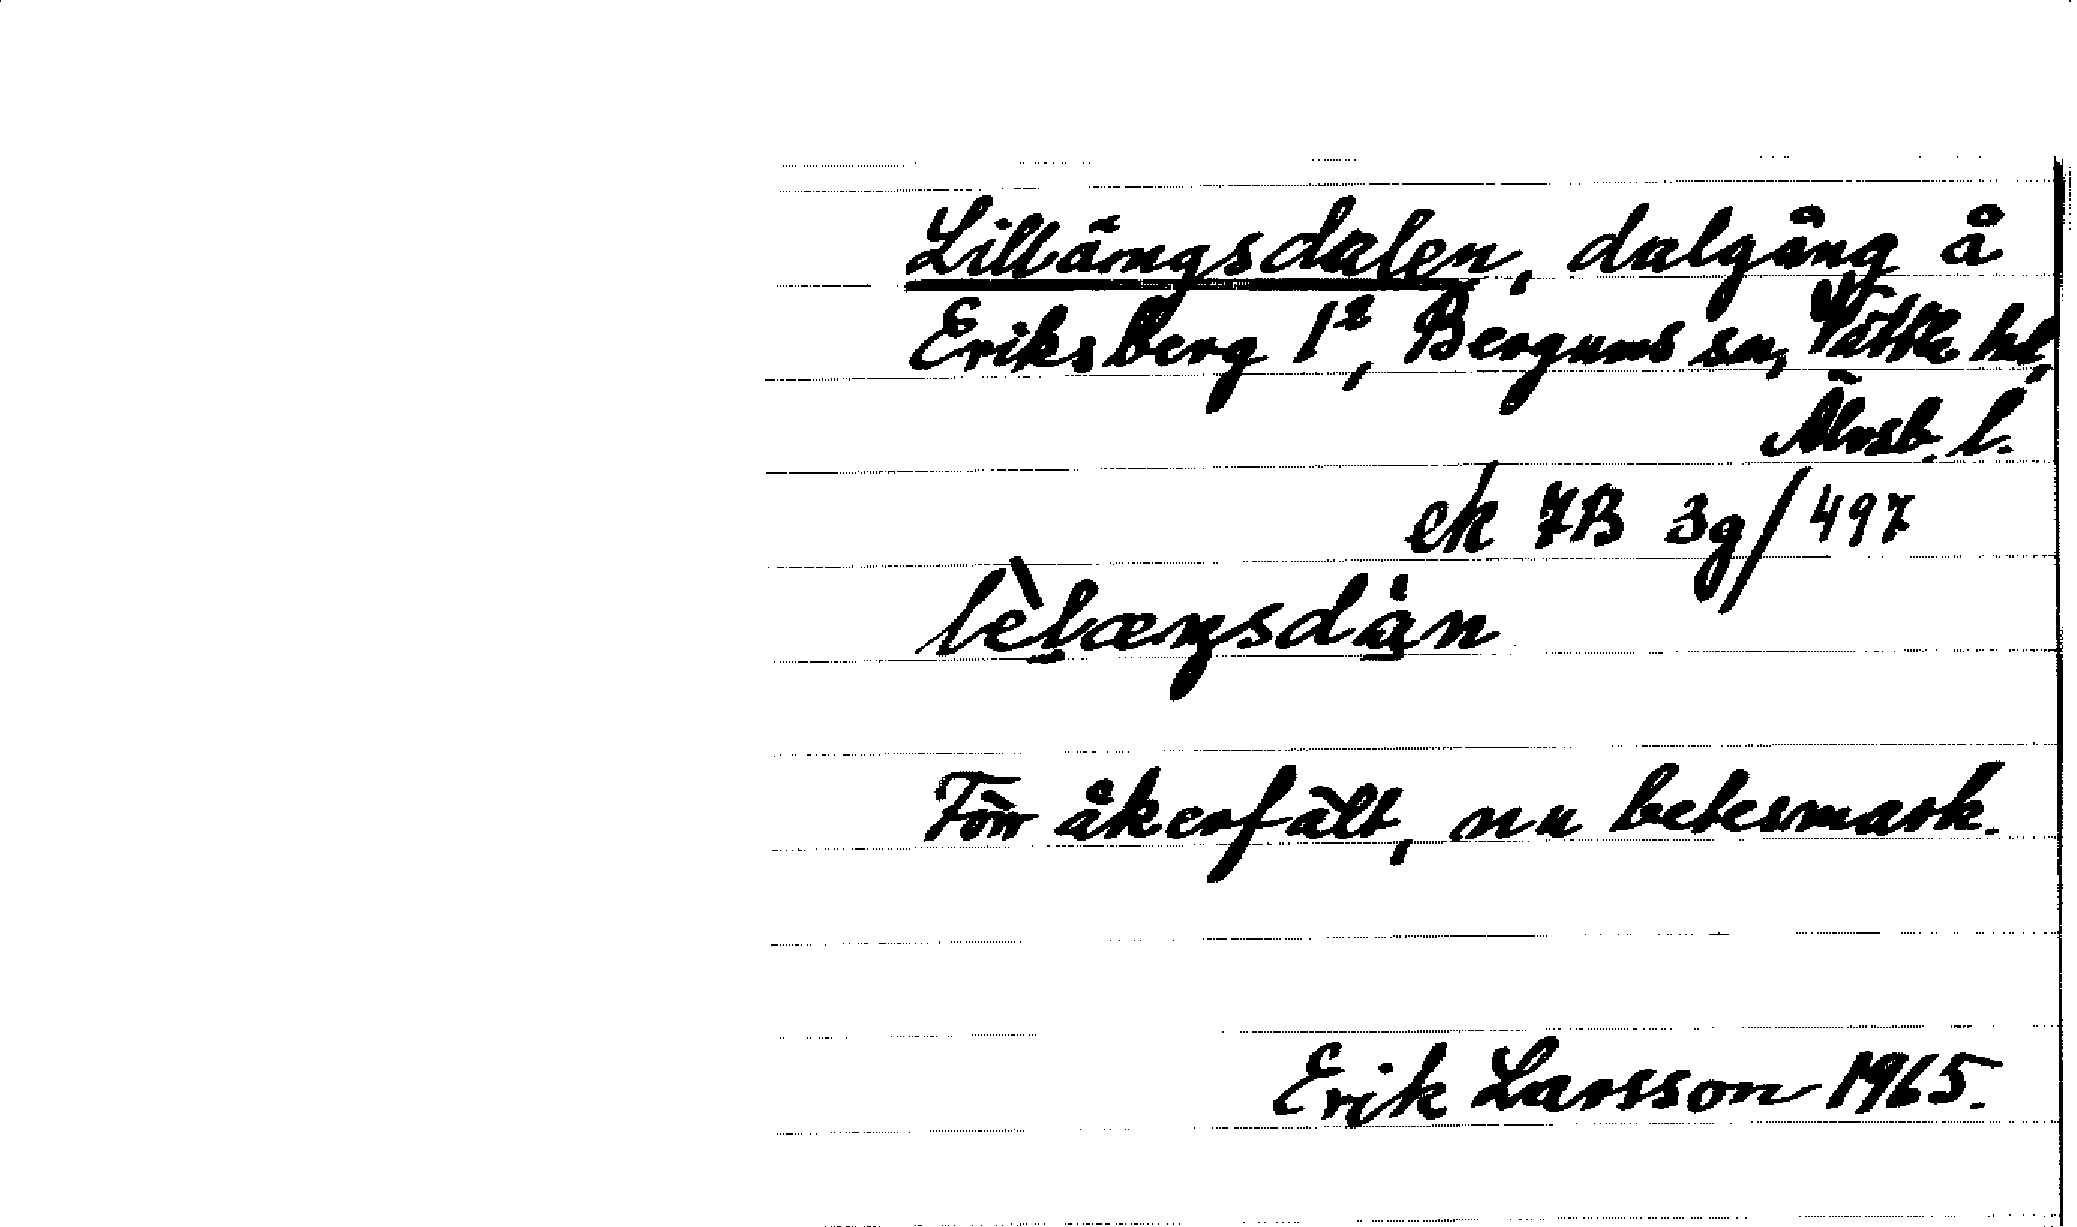 Lillängsdalen, dalgång å
Eriksberg 1², Bergums sn, Vättle hd,
Älvsb. l.
ek 7B 3g/497
lèḷæŋsdạ̊n
Förr åkerfält, nu betesmark.
Erik Larsson 1965.